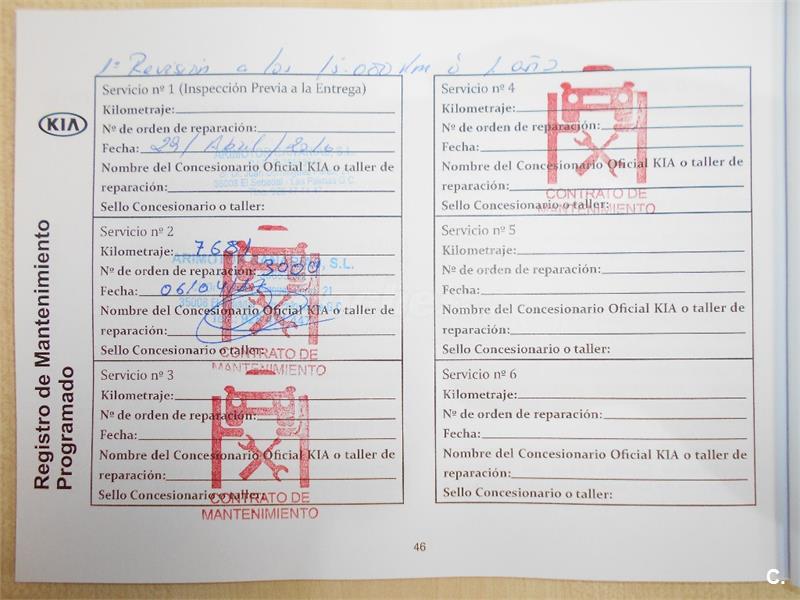 1ª Revisión a los 15.000 Km ó 1 año.
KIA
Registro de Mantenimiento
Programado
Servicio nº 1 (Inspección Previa a la Entrega)
Kilometraje:
Nº de orden de reparación:
Fecha: 29/Abril/2016
Nombre del Concesionario Oficial KIA o taller de
reparación:
35008 El Sebadal - Las Palmas G.C.
Sello Concesionario o taller:
Servicio nº 2
Kilometraje: 7681
ARIMOTOR CANARIAS, S.L.
Nº de orden de reparación: 3009
Fecha: 06/04/17
Nombre del Concesionario Oficial KIA o taller de
reparación:
Sello Concesionario o taller:
CONTRATO DE
MANTENIMIENTO
Servicio nº 3
Kilometraje:
Nº de orden de reparación:
Fecha:
Nombre del Concesionario Oficial KIA o taller de
reparación:
Sello Concesionario o taller:
CONTRATO DE
MANTENIMIENTO
Servicio nº 4
Kilometraje:
Nº de orden de reparación:
Fecha:
Nombre del Concesionario Oficial KIA o taller de
reparación:
CONTRATO DE
Sello Concesionario o taller:
MANTENIMIENTO
Servicio nº 5
Kilometraje:
Nº de orden de reparación:
Fecha:
Nombre del Concesionario Oficial KIA o taller de
reparación:
Sello Concesionario o taller:
Servicio nº 6
Kilometraje:
Nº de orden de reparación:
Fecha:
Nombre del Concesionario Oficial KIA o taller de
reparación:
Sello Concesionario o taller:
46
C.